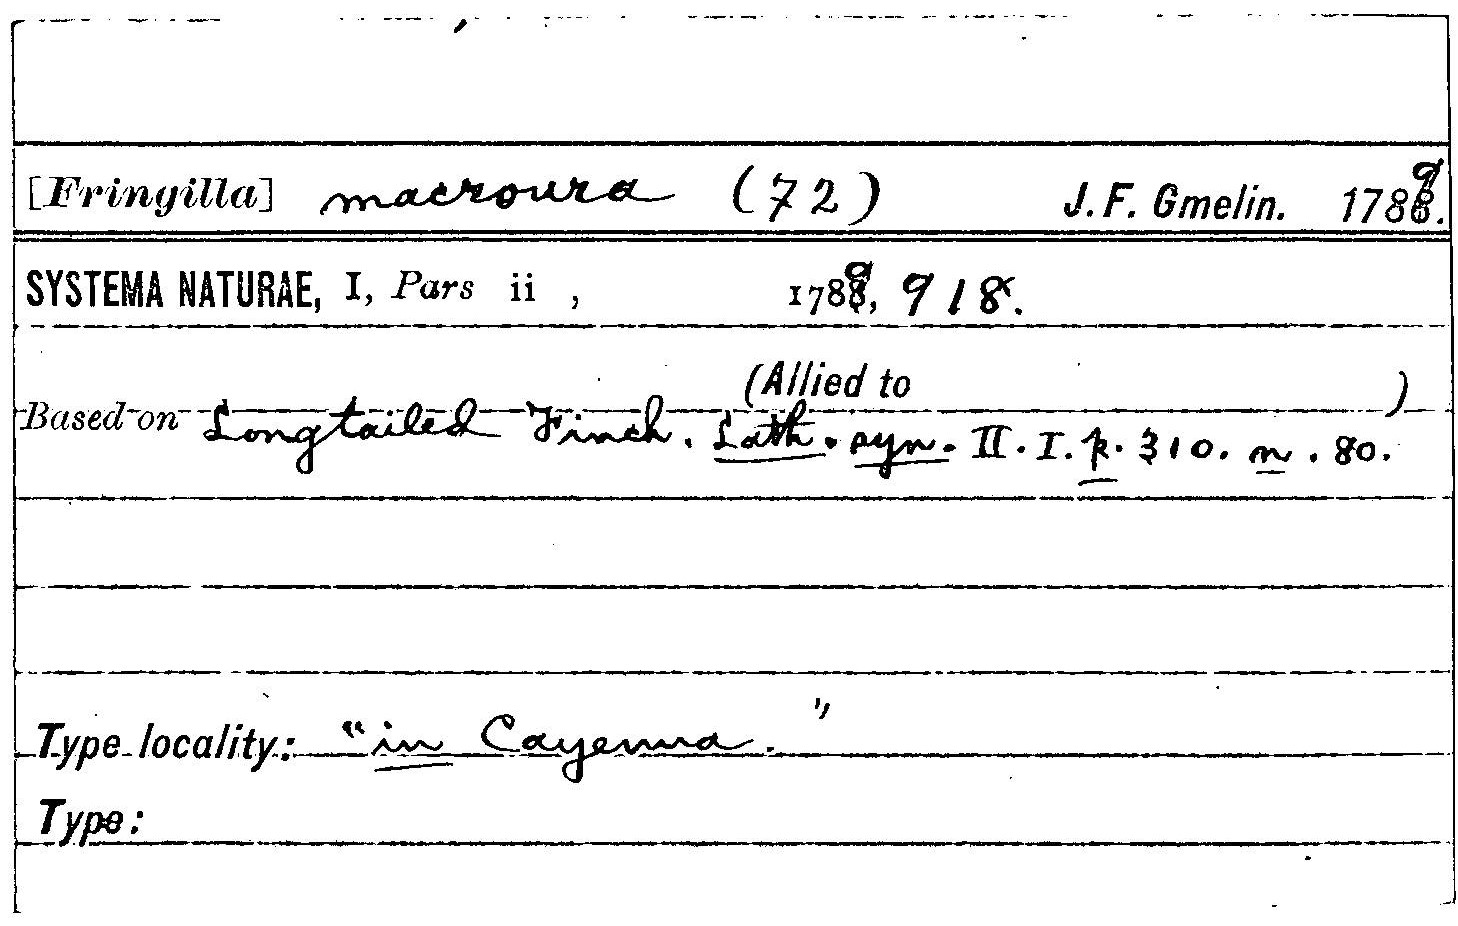 [Fringilla] macroura (72) J. F. Gmelin. 1789.
SYSTEMA NATURAE, I, Pars ii , 1789, 918.
(Allied to )
Based on Longtailed Finch. Lath. syn. II. I. p. 310. n. 80.
Type locality: "in Cayenna."
Type: